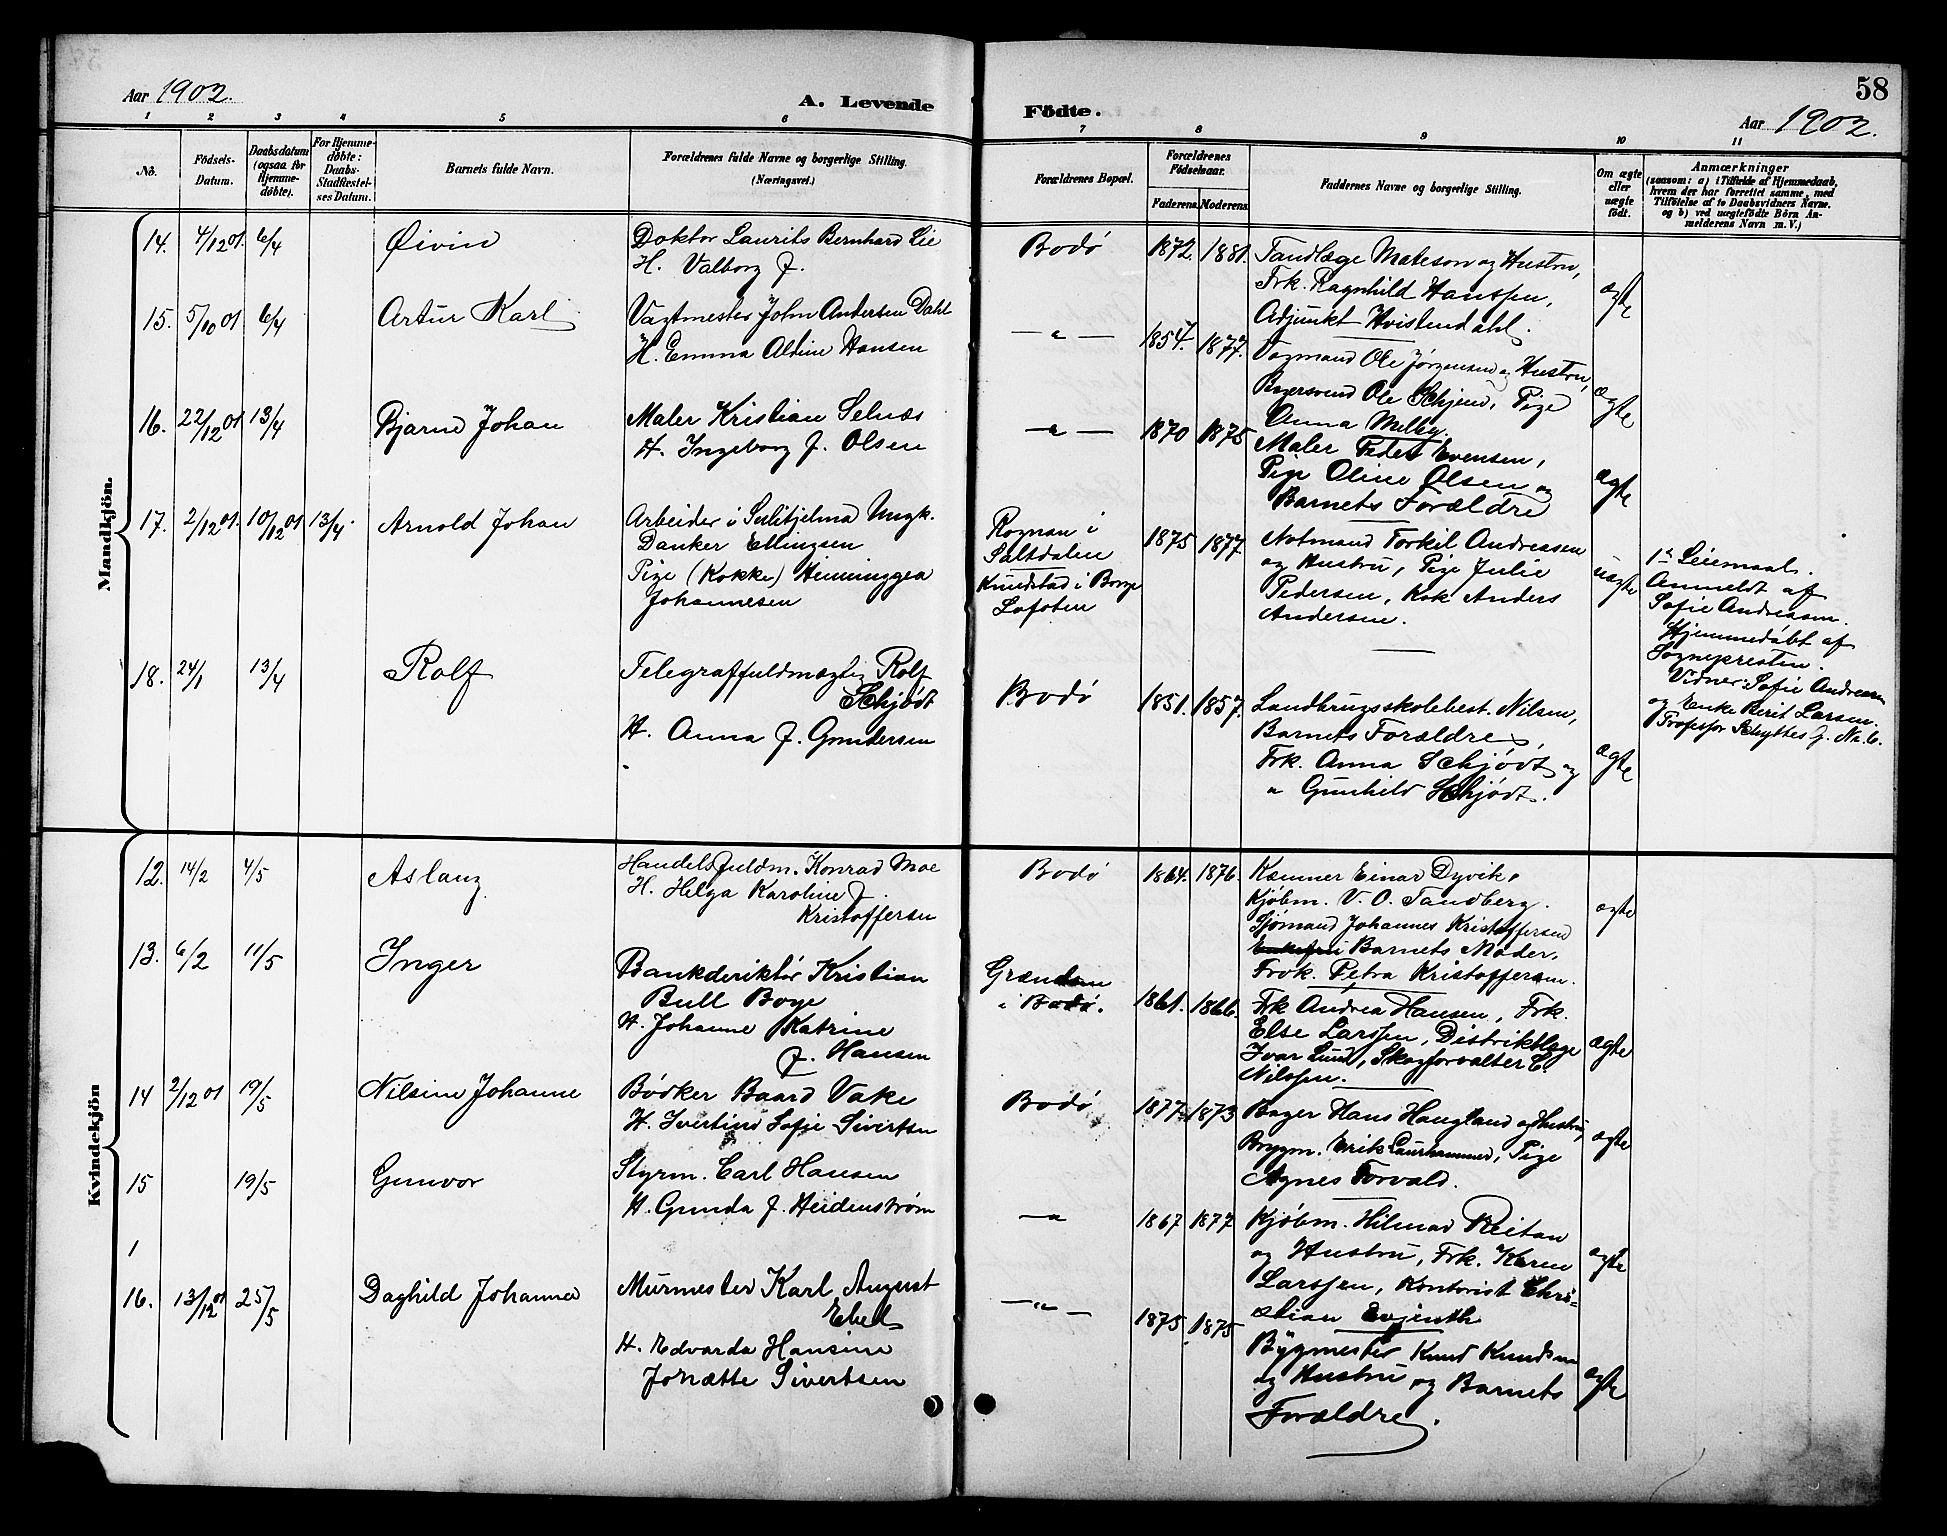 58
Aar 1902.
A. Levende
Födte.
Aar 1902.
1 2 3 4 5 6 7 8 9 10 11
No.
Födsels-Datum.
Daabsdatum (ogsaa for Hjemmedöbte).
For Hjemmedöbte: Daabs-Stadfæstelses Datum.
Barnets fulde Navn.
Forældrenes fulde Navne og borgerlige Stilling.
(Næringsvei.)
Forældrenes Bopæl.
Forældrenes Födselsaar.
Faderens. Moderens.
Faddernes Navne og borgerlig Stilling.
Om ægte eller uægte födt.
Anmærkninger
(saasom: a) i Tilfælde af Hjemmedaab,
hvem der har forrettet samme, med
Tilföielse af to Daabsvidners Navne.
og b) ved uægtefödte Börn An-
melderens Navn m. V.)
Mandkjön.
14. 4/12 01. 6/4 Øivin
Doktor Laurits Bernhard Lie
H. Valborg f.
Bodó 1872. 1881.
Tandlæge Mateson og Hustru,
Frk. Ragnhild Hanssen,
Adjunkt Hvistendahl.
ægte
15. 5/10 01 6/4 Artur Karl
Vagtmester John Andersen Dahl
H. Emma Altine Hansen
— " — 1854. 1877.
Vognmand Ole Jörgensen og Hustru,
Bagersvend Ole Schjem, Pige
Anna Melby.
ægte
16. 22/12 01 13/4 Bjarne Johan
Maler Kristian Selnæs
H. Ingeborg f. Olsen
— " — 1870 1875
Maler Peder Evensen,
Pige Oline Olsen og
Barnets Forældre
ægte
17. 2/12 01. 10/12 01 13/4. Arnold Johan
Arbeider i Sulitjelma Ungk.
Danker Ellingsen
Pige (Kokke) Henninggea
Johannesen
Rognan i
Saltdalen
Knudstad i Borge
Lofoten
1875 1877
Notmand Torkil Andreassen
og Hustru, Pige Julie
Pedersen, Kok Anders
Andersen.
uægte
1ste Leiemaal.
Anmeldt af
Sofie Andreasen.
Hjemmedöbt af
Sognepresten.
Vidner: Sofie Andreasen
og Enke Berit Larsen.
Professor Schyttes g. No. 6.
18. 24/1 13/4 Rolf
Telegraffuldmægtig Rolf
Schjödt
H. Anna f. Gundersen
Bodó 1851. 1857.
Landbrugsskolebest. Nilsen,
Barnets Forældre,
Frk. Anna Schjödt og
" Gunhild Schjödt.
ægte
Kvindekjön
12. 14/2 4/5 Aslaug
Handelsfuldm. Konrad Moe
H. Helga Karoline f.
Kristoffersen
Bodó 1864. 1876.
Kæmner Einar Dyvik,
Kjöbm. V. O. Tandberg.
Sjómand Johannes Kristoffersen
Barnets Moder,
Frok. Petra Kristoffersen.
ægte
13. 6/2 11/5 Inger
Bankderiktör Kristian
Bull Boye
H. Johanne Katrine
f. Hansen
Grændsen
i Bodó.
1861. 1866.
Frk Andrea Hansen, Frk.
Else Larssen, Distriktlæge
Ivar Lund, Skogforvalter C.
Nilssen.
ægte
14 2/12 01 19/5 Nilsine Johanne
Bödker Baard Vake
H. Ivertine Sofie Sivertsen
Bodó 1877. 1873
Bager Hans Haugland og Hustru,
Brygm. Erik Laurhammer, Pige
Agnes Forvald.
ægte
15 19/5 Gunvor
Styrm. Carl Hansen
H. Gunda f. Heidenström
— " 1867 1877
Kjöbm. Hilmar Reitan
og Hustru, Frk. Karen
Larssen, Kontorist Chri-
stian Evjenth
ægte
1
16. 13/12 01 25/5 Daghild Johanna
Murmester Karl August
Ebel
H. Edvarda Hansine
Jonætte Sivertsen
— " — 1875. 1875
Bygmester Knud Knudsen
og Hustru og Barnets
Forældre.
ægte